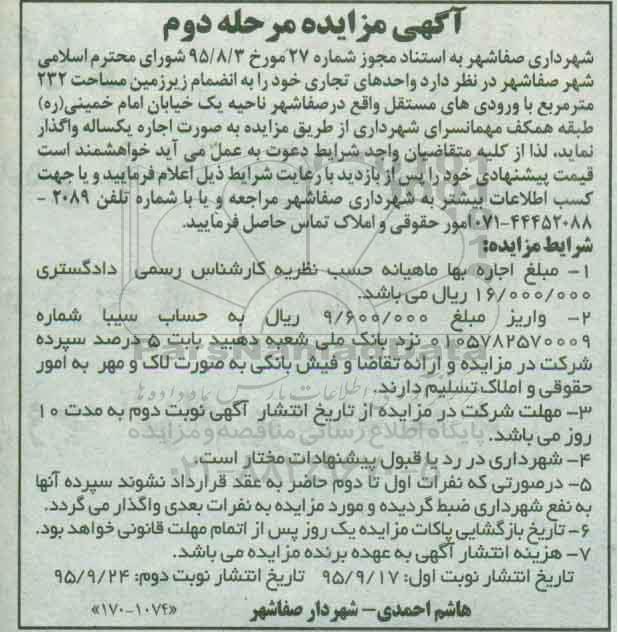 آگهی مزایده مرحله دوم
شهرداری صفاشهر به استناد مجوز شماره ۲۷ مورخ ۹۵/۸/۳ شورای محترم اسلامی
شهر صفاشهر در نظر دارد واحدهای تجاری خود را به انضمام زیرزمین مساحت ۲۳۲
مترمربع با ورودی های مستقل واقع درصفاشهر ناحیه یک خیابان امام خمینی(ره)
طبقه همکف مهمانسرای شهرداری از طریق مزایده به صورت اجاره یکساله واگذار
نماید، لذا از کلیه متقاضیان واجد شرایط دعوت به عمل می آید خواهشمند است
قیمت پیشنهادی خود را پس از بازدید با رعایت شرایط ذیل اعلام فرمایید و یا جهت
کسب اطلاعات بیشتر به شهرداری صفاشهر مراجعه و یا با شماره تلفن ۲۰۸۹ -
۰۷۱-۴۴۴۵۲۰۸۸ امور حقوقی و املاک تماس حاصل فرمایید.
شرایط مزایده:
۱- مبلغ اجاره بها ماهیانه حسب نظریه کارشناس رسمی دادگستری
۱۶/۰۰۰/۰۰۰ ریال می باشد.
۲- واریز مبلغ ۹/۶۰۰/۰۰۰ ریال به حساب سیبا شماره
۰۱۰۵۷۸۲۵۷۰۰۰۹ نزد بانک ملی شعبه دهبید بابت ۵ درصد سپرده
شرکت در مزایده و ارائه تقاضا و فیش بانکی به صورت لاک و مهر به امور
حقوقی و املاک تسلیم دارند.
۳- مهلت شرکت در مزایده از تاریخ انتشار آگهی نوبت دوم به مدت ۱۰
روز می باشد.
۴- شهرداری در رد یا قبول پیشنهادات مختار است.
۵- درصورتی که نفرات اول تا دوم حاضر به عقد قرارداد نشوند سپرده آنها
به نفع شهرداری ضبط گردیده و مورد مزایده به نفرات بعدی واگذار می گردد.
۶- تاریخ بازگشایی پاکات مزایده یک روز پس از اتمام مهلت قانونی خواهد بود.
۷- هزینه انتشار آگهی به عهده برنده مزایده می باشد.
تاریخ انتشار نوبت اول: ۹۵/۹/۱۷ تاریخ انتشار نوبت دوم: ۹۵/۹/۲۴
هاشم احمدی- شهردار صفاشهر «۱۷۰-۱۰۷۴»
ParsNamadData
پایگاه اطلاع رسانی مناقصه و مزایده